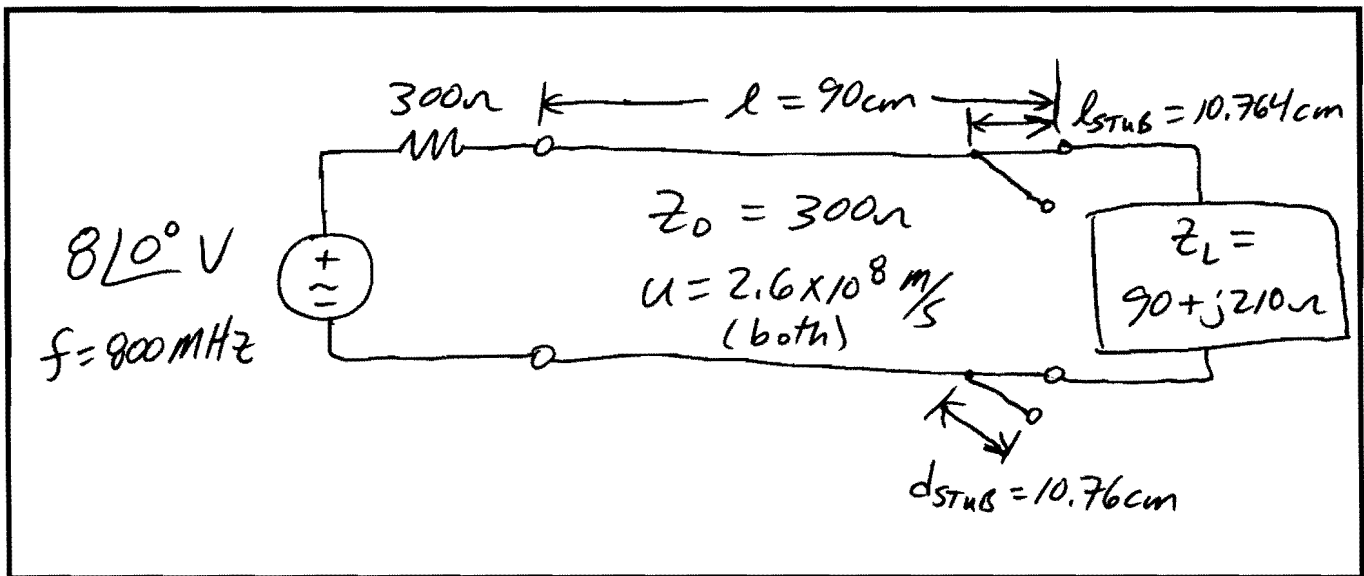 300Ω
l = 90cm
l_STUB = 10.764cm
8∠0° V
f = 800MHz
Z_0 = 300Ω
u = 2.6×10^8 m/s
(both)
Z_L =
90+j210Ω
d_STUB = 10.76cm